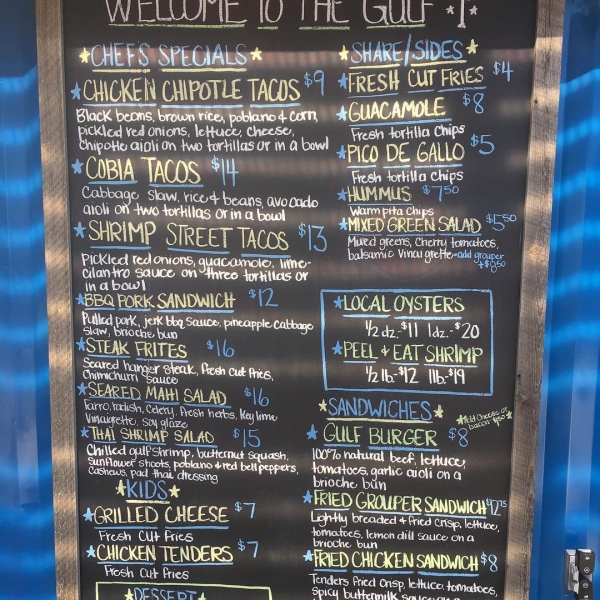 WELCOME TO THE GULF
CHEF'S SPECIALS
CHICKEN CHIPOTLE TACOS $9
Black beans, brown rice, poblano & corn,
pickled red onions, lettuce, cheese,
chipotle aioli on two tortillas or in a bowl
COBIA TACOS $14
Cabbage slaw, rice & beans, avocado
aioli on two tortillas or in a bowl
SHRIMP STREET TACOS $13
Pickled red onions, guacamole, lime-
cilantro sauce on three tortillas or
in a bowl
BBQ PORK SANDWICH $12
Pulled pork, jerk bbq sauce, pineapple cabbage
slaw, brioche bun
STEAK FRITES $16
Seared hanger steak, fresh cut fries,
Chimichurri sauce
SEARED MAHI SALAD $16
Farro, radish, celery, fresh herbs, key lime
Vinaigrette, soy glaze
THAI SHRIMP SALAD $15
Chilled gulf shrimp, butternut squash,
Sunflower shoots, poblano & red bell peppers,
Cashews, pad thai dressing
KIDS
GRILLED CHEESE $7
Fresh Cut Fries
CHICKEN TENDERS $7
Fresh Cut fries
DESSERT
SHARE/SIDES
FRESH CUT FRIES $4
GUACAMOLE $8
Fresh tortilla chips
PICO DE GALLO $5
Fresh tortilla chips
HUMMUS $7.50
Warm pita chips
MIXED GREEN SALAD $5.50
Mixed greens, Cherry tomatoes,
balsamic vinaigrette -add grouper
+$8.50
LOCAL OYSTERS
1/2 dz.-$11 1dz.-$20
PEEL & EAT SHRIMP
1/2 lb.-$12 1lb.-$19
SANDWICHES
*Add Cheese or
bacon
GULF BURGER $8
100% natural beef, lettuce,
tomatoes, garlic aioli on a
brioche bun
FRIED GROUPER SANDWICH $12.75
Lightly breaded & fried crisp, lettuce,
tomatoes, lemon dill sauce on a
brioche bun
FRIED CHICKEN SANDWICH $8
Tenders fried crisp, lettuce, tomatoes,
spicy buttermilk